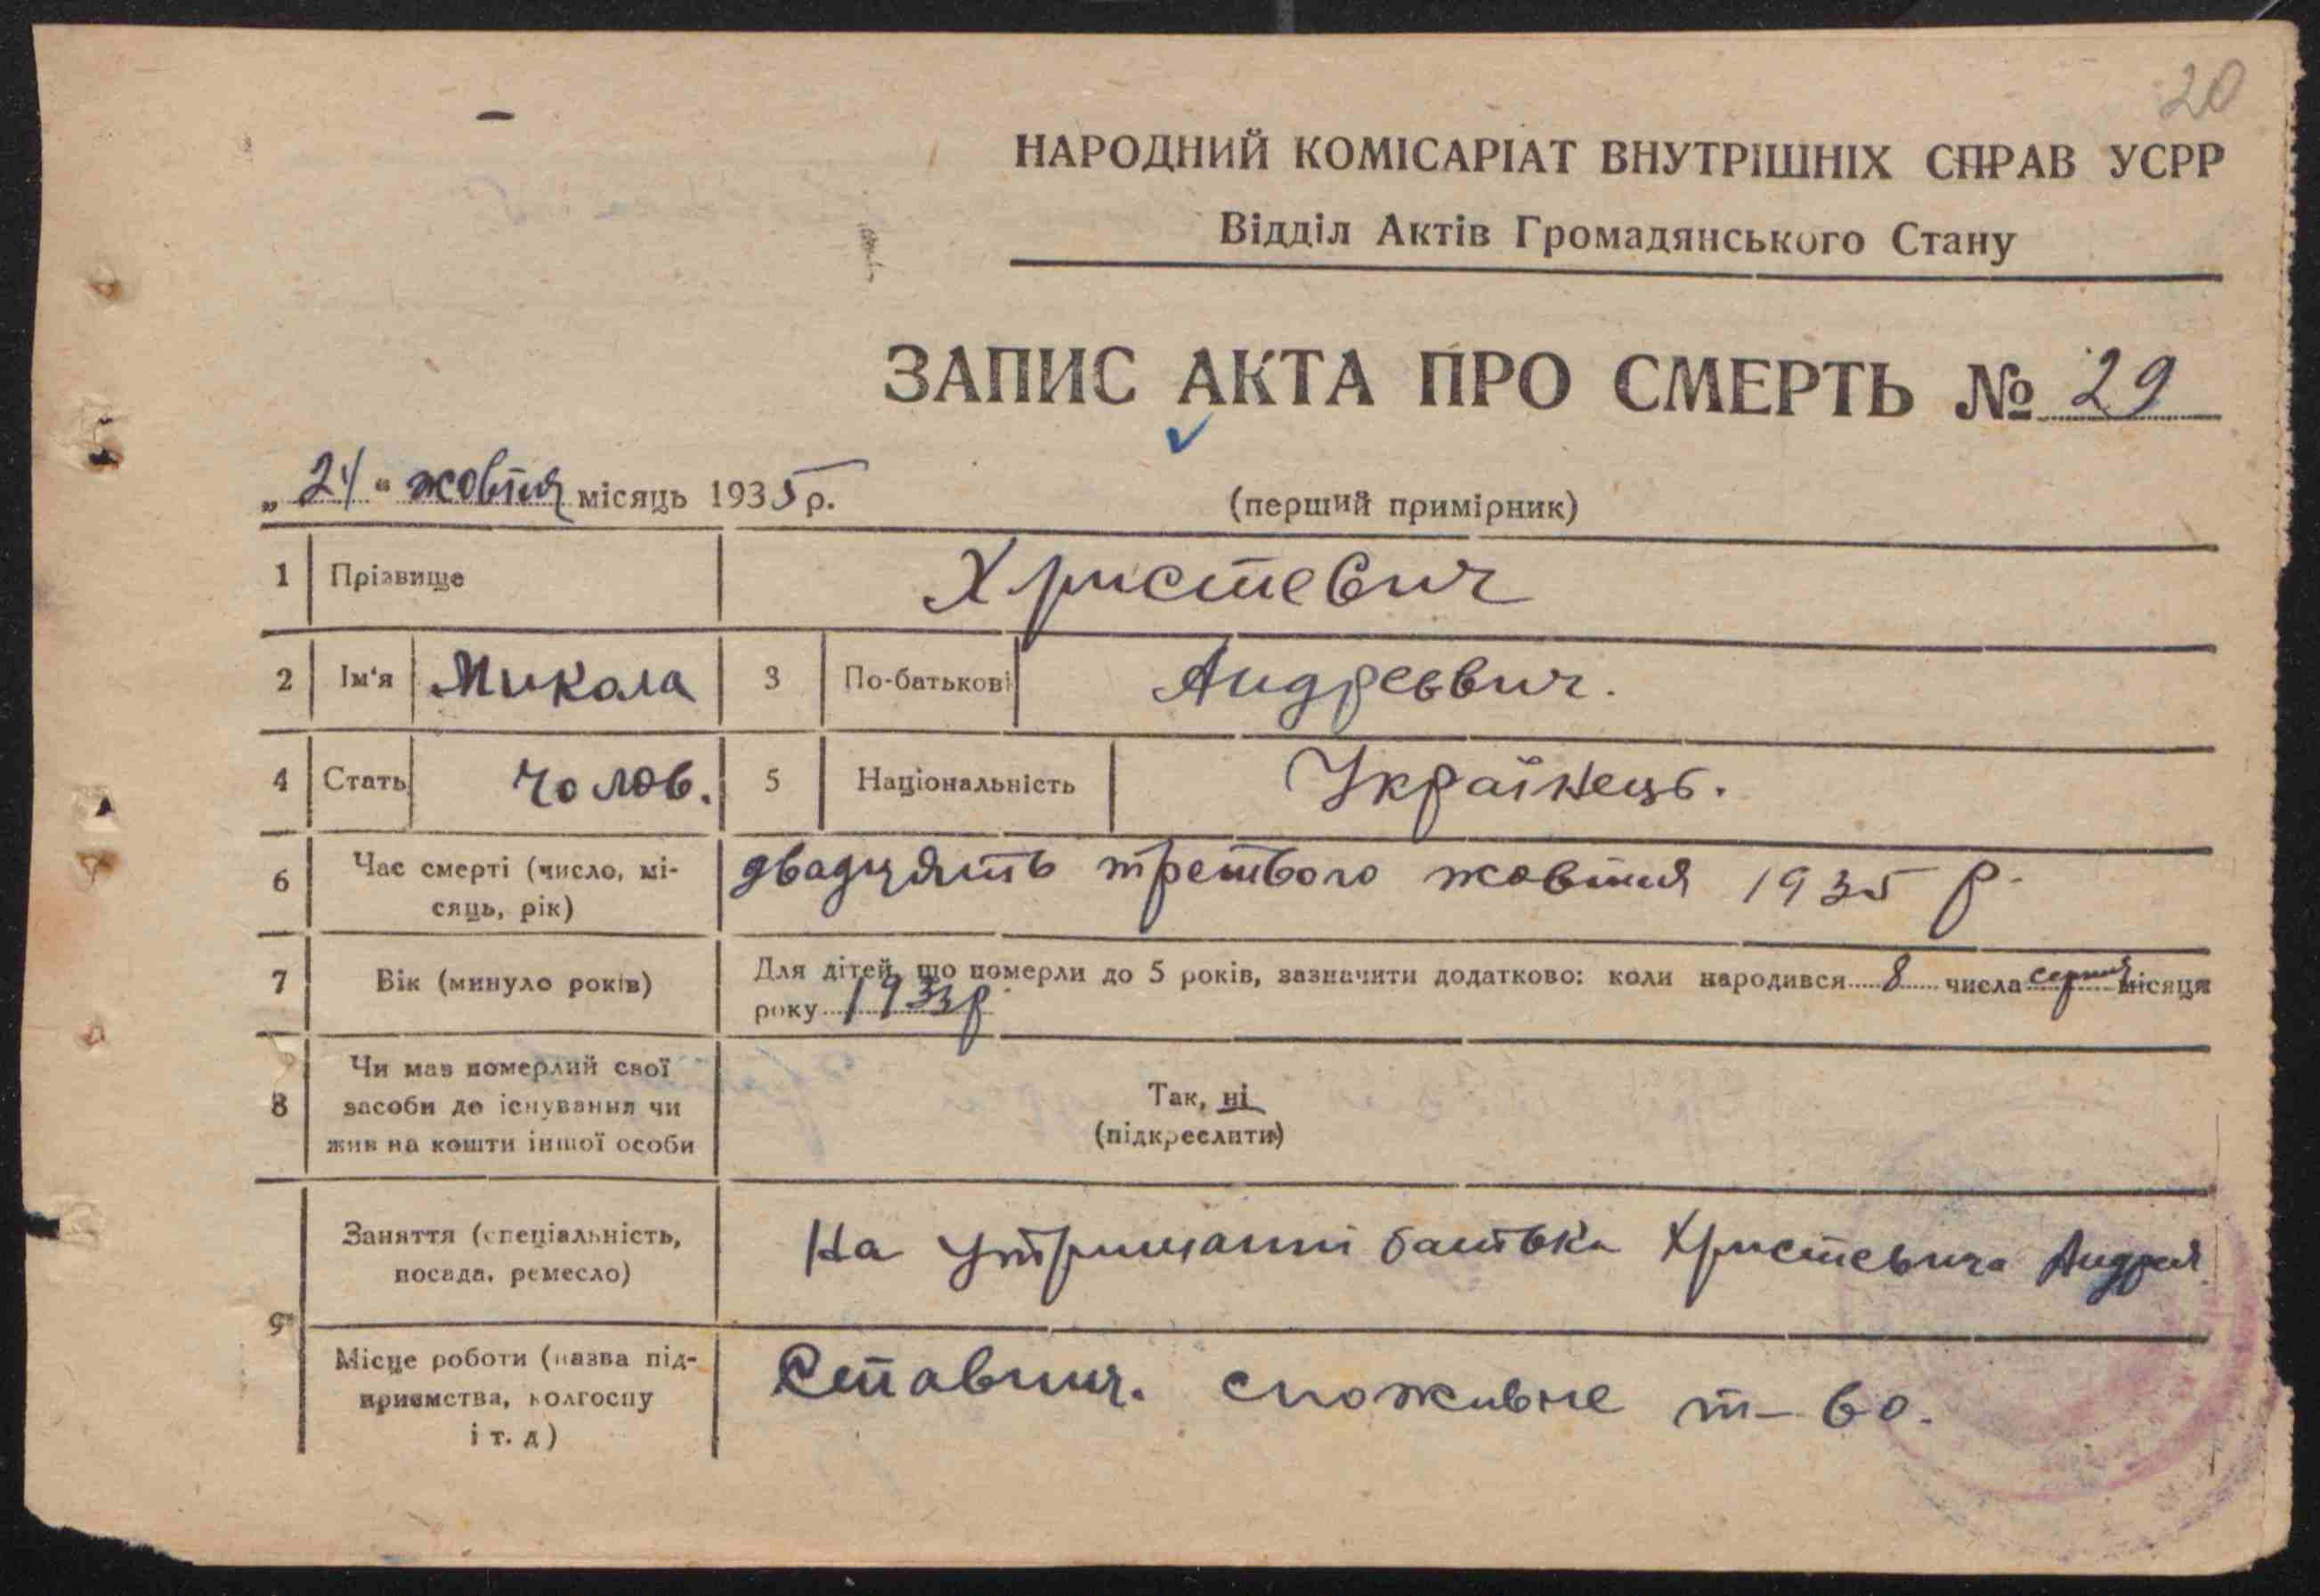 20
НАРОДНИЙ КОМІСАРІАТ ВНУТРІШНІХ СПРАВ УСРР
Відділ Актів Громадянського Стану
ЗАПИС АКТА ПРО СМЕРТЬ № 29
„ 24 “ жовтня місяць 1935 р.
(перший примірник)
1 Прізвище Христевич
2 Ім'я Микола 3 По-батькові Андреєвич.
4 Стать чолов. 5 Національність Українець.
6 Час смерті (число, мі-
сяць, рік) двадцять третього жовтня 1935 р.
7 Вік (минуло років) Для дітей, що померли до 5 років, зазначити додатково: коли народився 8 числа серпня місяця
року 1933 р
8 Чи мав померлий свої
засоби до існування чи
жив на кошти іншої особи
Так, ні
(підкреслити)
9 Заняття (спеціальність,
посада, ремесло) На утриманні батька Христевича Андрея
Місце роботи (назва під-
приємства, колгоспу
і т. д) Ставнич. споживче т-во.